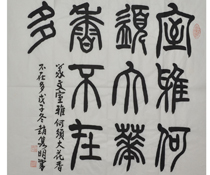 室雅何
須大華
香不在
多
篆文室雅何須大花香
不在多戊子冬